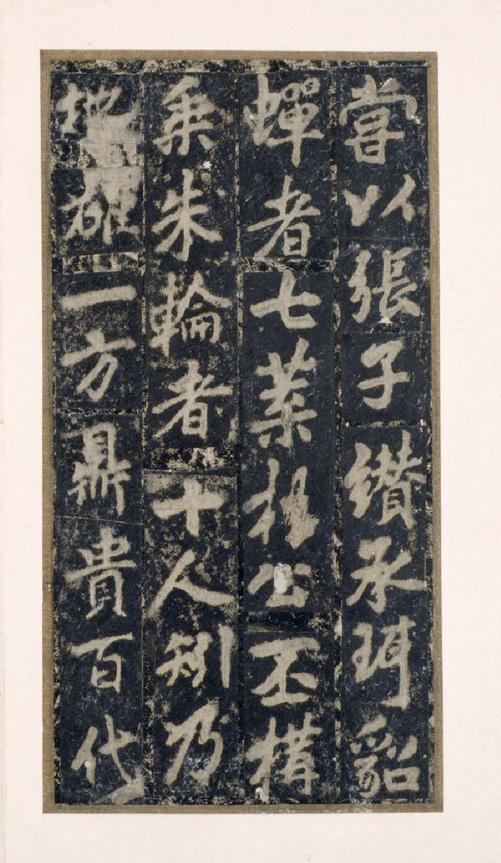 嘗以張子纘承珥貂
蟬者七葉楊公丕構
乘朱輪者十人矧乃
地雄一方鼎貴百代